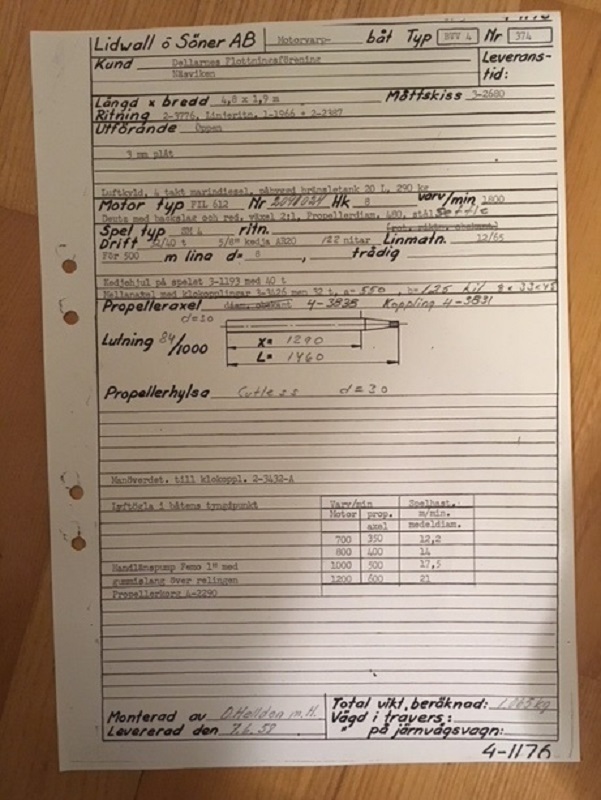 Lidwall ö Söner AB Motorvarp- båt Typ BVV 4 Nr 374
Kund Dellarnes Flottningsförening Leverans-
Näsviken tid:
Längd x bredd 4,8 x 1,9 m Måttskiss 3-2680
Ritning 2-3776, Linjeritn. 1-1966 + 2-2387
Utförande Öppen
3 mm plåt
Luftkyld, 4 takt marindiesel, påbyggd bränsletank 20 L, 290 kg
Motor typ FIL 612 Nr Hk 8 varv/min 1800
Deutz med backslag och red. växel 2:1, Propellerdiam. 480, stål
Spel typ SM 4 ritn.
Drift 32/40 t 5/8" kedja A320 122 nitar Linmatn. 12/65
För 500 m lina d= 8 , trådig
Kedjehjul på spelet 3-1193 med 40 t
Mellanaxel med klokopplingar 3-3426 men 32 t, a= 550
Propelleraxel 4-3835 Koppling 4-3831
d=30
Lutning 84/1000 X= 1290
L= 1460
Propellerhylsa Cutless d=30
Manöverdet. till klokoppl. 2-3432-A
Lyftögla i båtens tyngdpunkt
Varv/min Spelhast.
Motor prop. m/min.
axel medeldiam.
700 350 12,2
800 400 14
Handlänspump Femo 1" med 1000 500 17,5
gummislang över relingen 1200 600 21
Propellerkorg A-2290
Total vikt, beräknad: 1.065 kg
Monterad av O.Helldén m.H. Vägd i travers:
Levererad den 7.6.58 " på järnvägsvagn:
4-1176